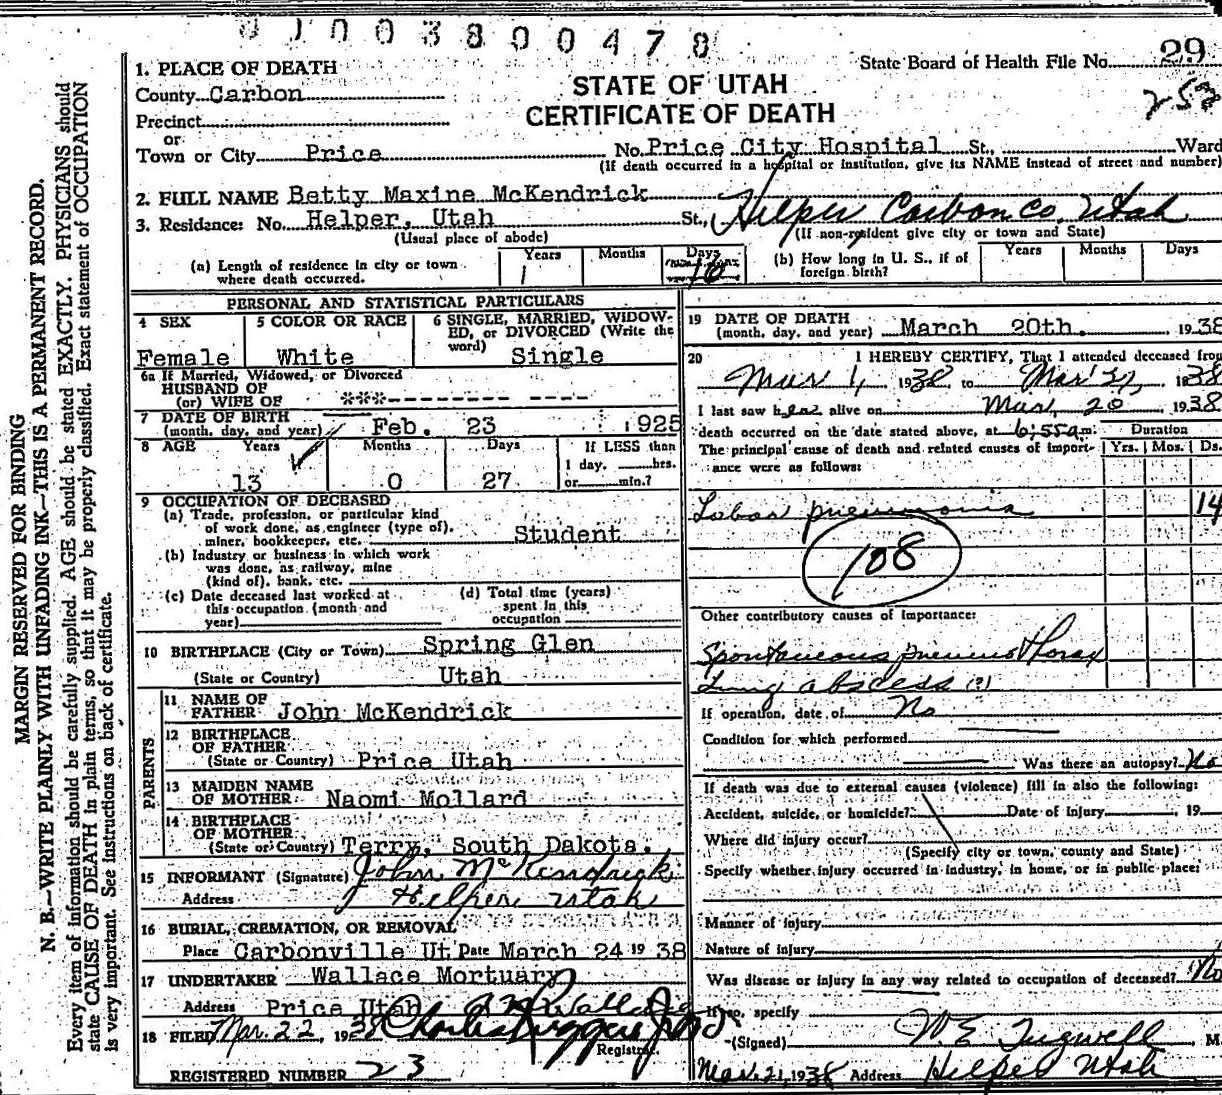 01003800478
State Board of Health File No. 29
252
STATE OF UTAH
CERTIFICATE OF DEATH
MARGIN RESERVED FOR BINDING
N. B.—WRITE PLAINLY WITH UNFADING INK—THIS IS A PERMANENT RECORD.
Every item of information should be carefully supplied. AGE should be stated EXACTLY. PHYSICIANS should
state CAUSE OF DEATH in plain terms, so that it may be properly classified. Exact statement of OCCUPATION
is very important. See instructions on back of certificate.
1. PLACE OF DEATH
County Carbon
Precinct
or
Town or City Price No. Price City Hospital St., Ward
(If death occurred in a hospital or institution, give its NAME instead of street and number)
2. FULL NAME Betty Maxine McKendrick
3. Residence: No. Helper, Utah St., Helper Carbon Co. Utah
(Usual place of abode) (If non-resident give city or town and State)
(a) Length of residence in city or town where death occurred. Years 1 Months Days 10
(b) How long in U. S., if of foreign birth? Years Months Days
PERSONAL AND STATISTICAL PARTICULARS
4 SEX Female
5 COLOR OR RACE White
6 SINGLE, MARRIED, WIDOWED, or DIVORCED (Write the word) Single
6a If Married, Widowed, or Divorced
HUSBAND OF
(or) WIFE OF ***--------- ----
7 DATE OF BIRTH
(month, day, and year) Feb. 23 1925
8 AGE Years 13 Months 0 Days 27 If LESS than 1 day, hrs. or min.?
9 OCCUPATION OF DECEASED
(a) Trade, profession, or particular kind
of work done, as engineer (type of),
miner, bookkeeper, etc. Student
(b) Industry or business in which work
was done, as railway, mine
(kind of), bank, etc.
(c) Date deceased last worked at
this occupation (month and
year)
(d) Total time (years)
spent in this
occupation
10 BIRTHPLACE (City or Town) Spring Glen
(State or Country) Utah
PARENTS
11 NAME OF
FATHER John McKendrick
12 BIRTHPLACE
OF FATHER
(State or Country) Price Utah
13 MAIDEN NAME
OF MOTHER Naomi Mollard
14 BIRTHPLACE
OF MOTHER
(State or Country) Terry, South Dakota.
15 INFORMANT (Signature) John McKendrick
Address Helper Utah
16 BURIAL, CREMATION, OR REMOVAL
Place Carbonville Ut. Date March 24 19 38
17 UNDERTAKER Wallace Mortuary
Address Price Utah
18 FILED Mar. 22, 1938
Registrar.
REGISTERED NUMBER 23
19 DATE OF DEATH
(month, day, and year) March 20th. , 1938
20 I HEREBY CERTIFY, That I attended deceased from
Mar 1, 1938, to , 1938
I last saw her alive on Mar, 20 , 1938
death occurred on the date stated above, at 6:55 a m. Duration
The principal cause of death and related causes of importance were as follows: Yrs. Mos. Ds.
Lobar pneumonia 14
108
Other contributory causes of importance:
Spontaneous pneumothorax
Lung abscess (?)
If operation, date of No
Condition for which performed
Was there an autopsy? No
If death was due to external causes (violence) fill in also the following:
Accident, suicide, or homicide? Date of Injury , 19
Where did injury occur?
(Specify city or town, county and State)
Specify whether injury occurred in industry, in home, or in public place:
Manner of injury
Nature of injury
Was disease or injury in any way related to occupation of deceased? No
If so, specify
(Signed) W. E. Tugwell, M.
Mar. 21, 1938 Address Helper Utah